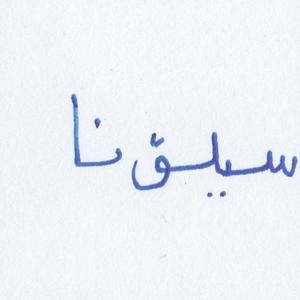 سيلق نا